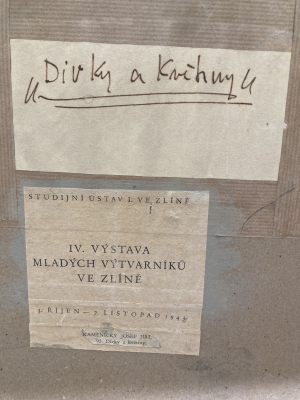 „Dívky a Květiny“
STUDIJNÍ ÚSTAV I. VE ZLÍNĚ
IV. VÝSTAVA
MLADÝCH VÝTVARNÍKŮ
VE ZLÍNĚ
ŘÍJEN — 7. LISTOPAD 1943
KAMENICKÝ JOSEF JIŘÍ,
Dívky a květiny.